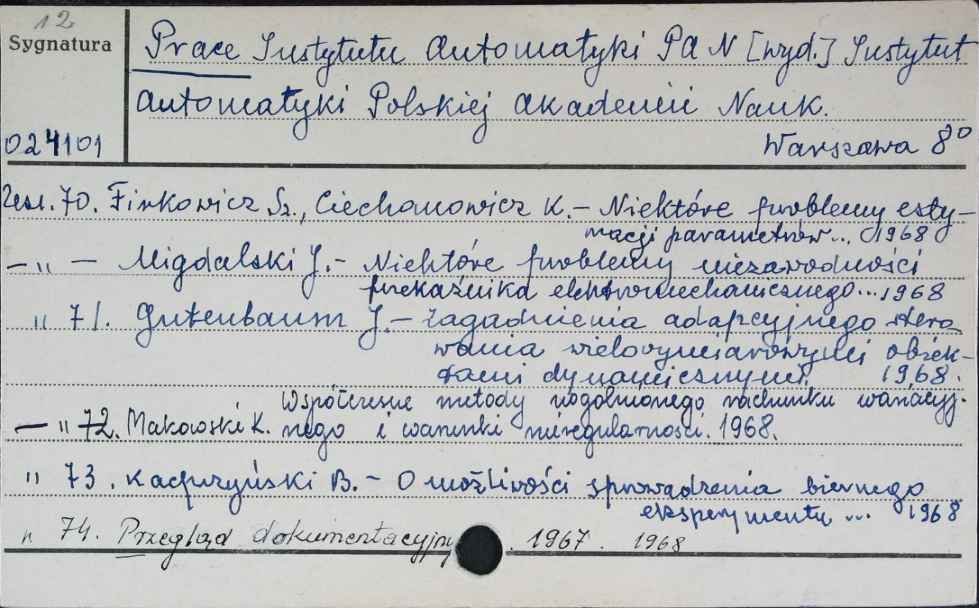 12
Sygnatura
Prace Instytutu Automatyki PAN [wyd.] Instytut
Automatyki Polskiej Akademii Nauk.
024101
Warszawa 8°
Zesz. 70. Finkowicz Sz., Ciechanowicz K. - Niektóre problemy esty-
macji parametrów... 1968
— " — Migdalski J. - Niektóre problemy niezawodności
przekaźnika elektromechanicznego... 1968
" 71. Gutenbaum J. - Zagadnienia adapcyjnego stero
wania wielowymiarowymi obiek-
tami dynamicznymi. 1968.
Współczesne metody uogólnionego rachunku wariacyj-
— " 72. Makowski K. nego i warunki nieregularności. 1968.
" 73. Kacprzyński B. - O możliwości sprowadzenia biernego
eksperymentu ... 1968
" 74. Przegląd dokumentacyjny . 1967 . 1968